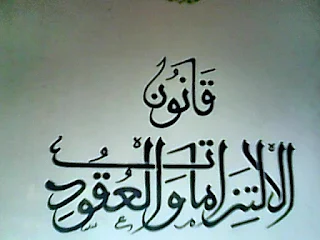 قانون
الالتزامات والعقود